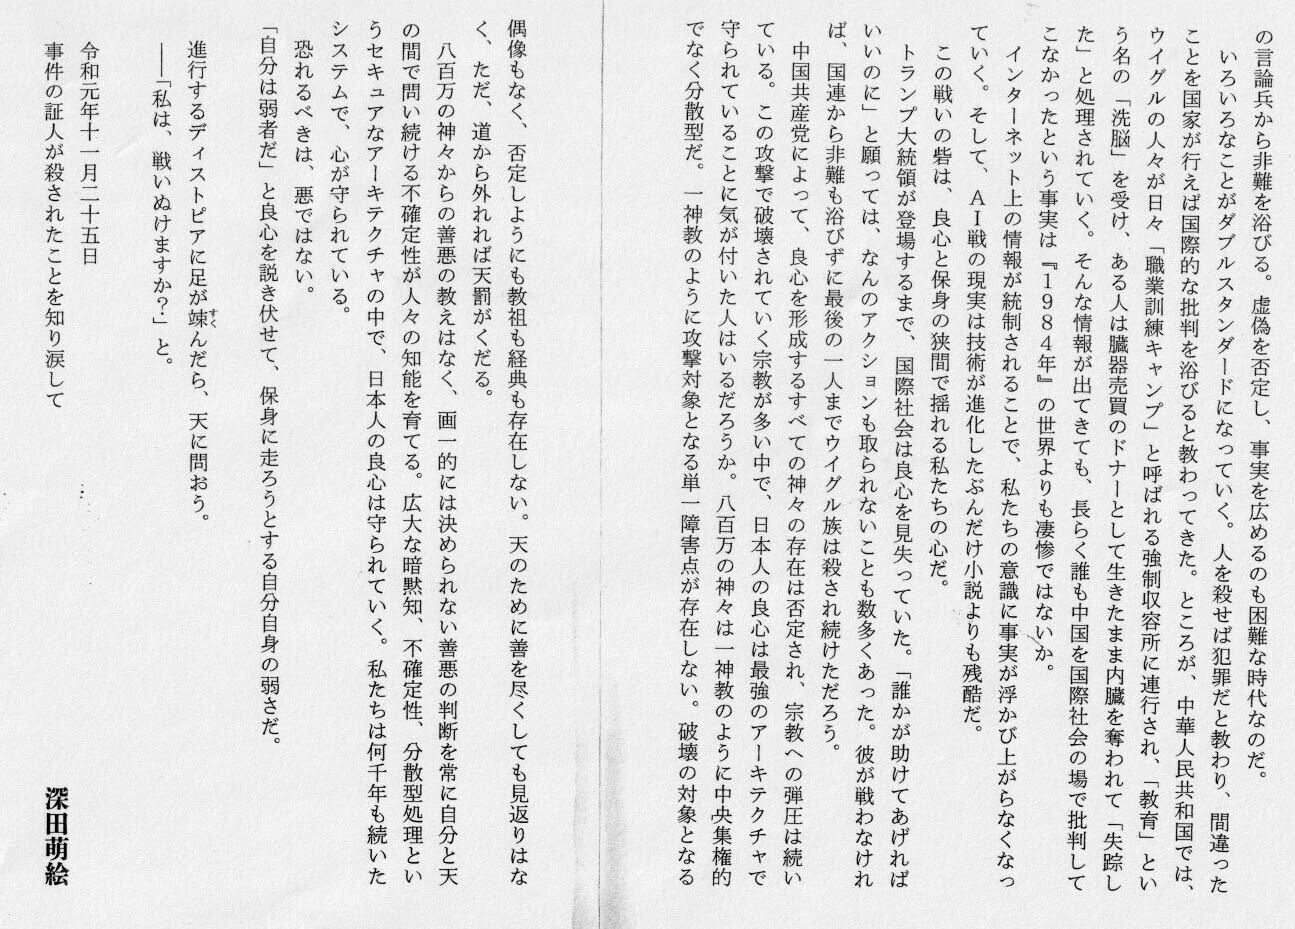 の言論兵から非難を浴びる。虚偽を否定し、事実を広めるのも困難な時代なのだ。
いろいろなことがダブルスタンダードになっていく。人を殺せば犯罪だと教わり、間違った
ことを国家が行えば国際的な批判を浴びると教わってきた。ところが、中華人民共和国では、
ウイグルの人々が日々「職業訓練キャンプ」と呼ばれる強制収容所に連行され、「教育」とい
う名の「洗脳」を受け、ある人は臓器売買のドナーとして生きたまま内臓を奪われて「失踪し
た」と処理されていく。そんな情報が出てきても、長らく誰も中国を国際社会の場で批判して
こなかったという事実は『1984年』の世界よりも凄惨ではないか。
インターネット上の情報が統制されることで、私たちの意識に事実が浮かび上がらなくなっ
ていく。そして、AI戦の現実は技術が進化したぶんだけ小説よりも残酷だ。
この戦いの砦は、良心と保身の狭間で揺れる私たちの心だ。
トランプ大統領が登場するまで、国際社会は良心を見失っていた。「誰かが助けてあげれば
いいのに」と願っては、なんのアクションも取られないことも数多くあった。彼が戦わなけれ
ば、国連から非難も浴びずに最後の一人までウイグル族は殺され続けただろう。
中国共産党によって、良心を形成するすべての神々の存在は否定され、宗教への弾圧は続い
ている。この攻撃で破壊されていく宗教が多い中で、日本人の良心は最強のアーキテクチャで
守られていることに気が付いた人はいるだろうか。八百万の神々は一神教のように中央集権的
でなく分散型だ。一神教のように攻撃対象となる単一障害点が存在しない。破壊の対象となる
偶像もなく、否定しようにも教祖も経典も存在しない。天のために善を尽くしても見返りはな
く、ただ、道から外れれば天罰がくだる。
八百万の神々からの善悪の教えはなく、画一的には決められない善悪の判断を常に自分と天
の間で問い続ける不確定性が人々の知能を育てる。広大な暗黙知、不確定性、分散型処理とい
うセキュアなアーキテクチャの中で、日本人の良心は守られていく。私たちは何千年も続いた
システムで、心が守られている。
恐れるべきは、悪ではない。
「自分は弱者だ」と良心を説き伏せて、保身に走ろうとする自分自身の弱さだ。
進行するディストピアに足が竦んだら、天に問おう。
すく
――「私は、戦いぬけますか？」と。
令和元年十一月二十五日
事件の証人が殺されたことを知り涙して
深田萌絵